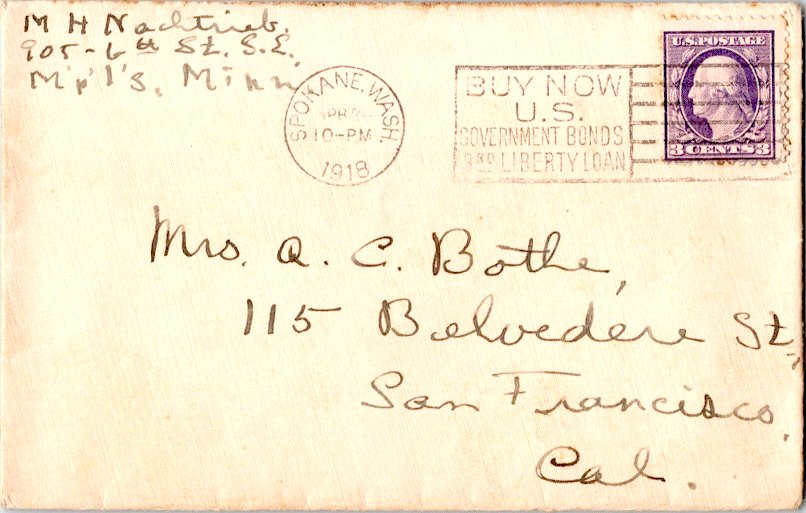 M H Nachtrieb,
905-6th St. S.E.
M'p'l's, Minn
SPOKANE, WASH.
APR
10-PM
1918
BUY NOW
U.S.
GOVERNMENT BONDS
3RD LIBERTY LOAN
U.S. POSTAGE
3 CENTS 3
Mrs. A. C. Bothe,
115 Belvedere St.,
San Francisco,
Cal.